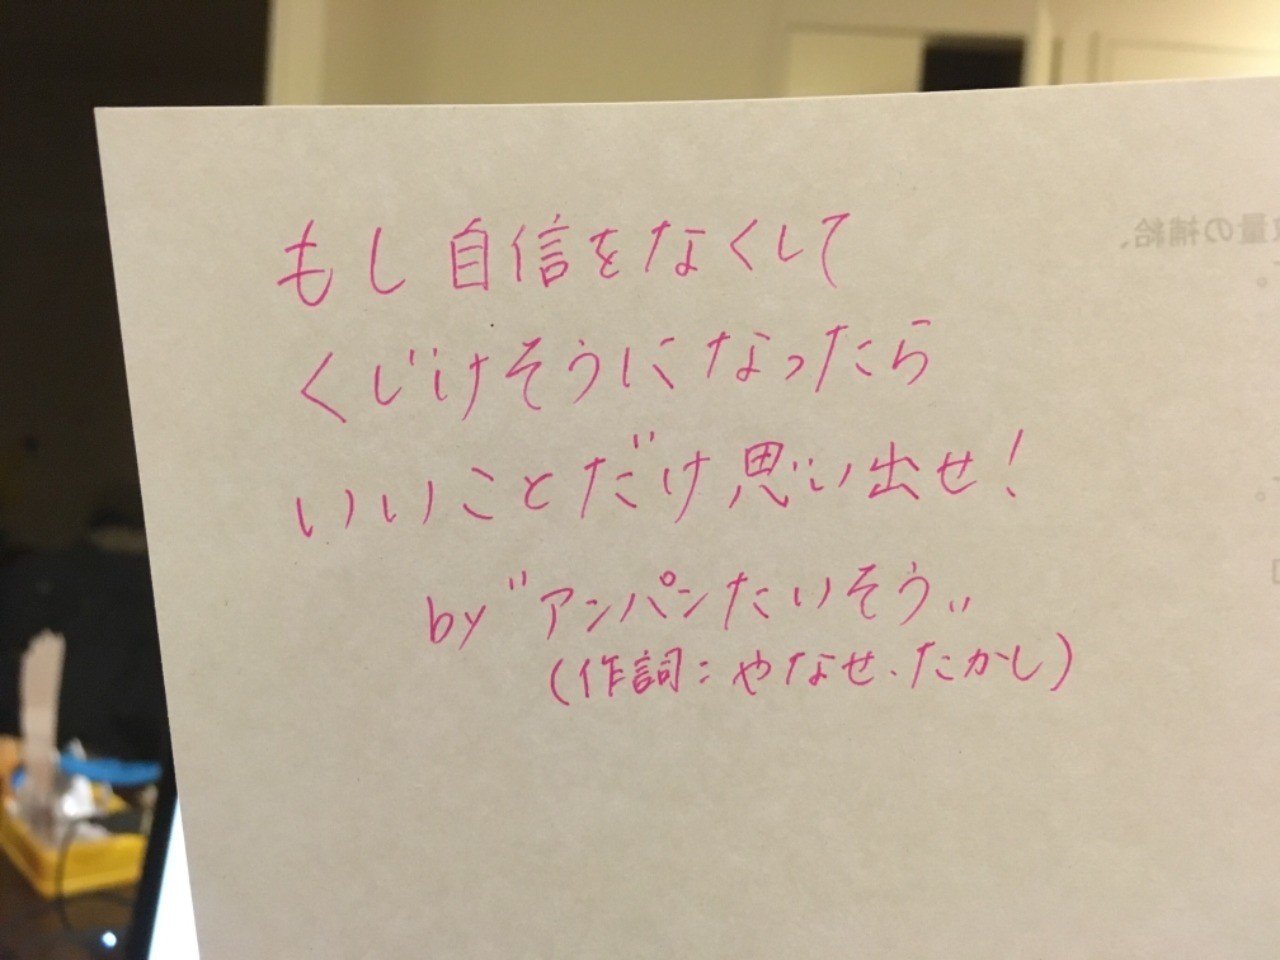 もし自信をなくして
くじけそうになったら
いいことだけ思い出せ!
by "アンパンたいそう"
(作詞:やなせ.たかし)
量の補給、